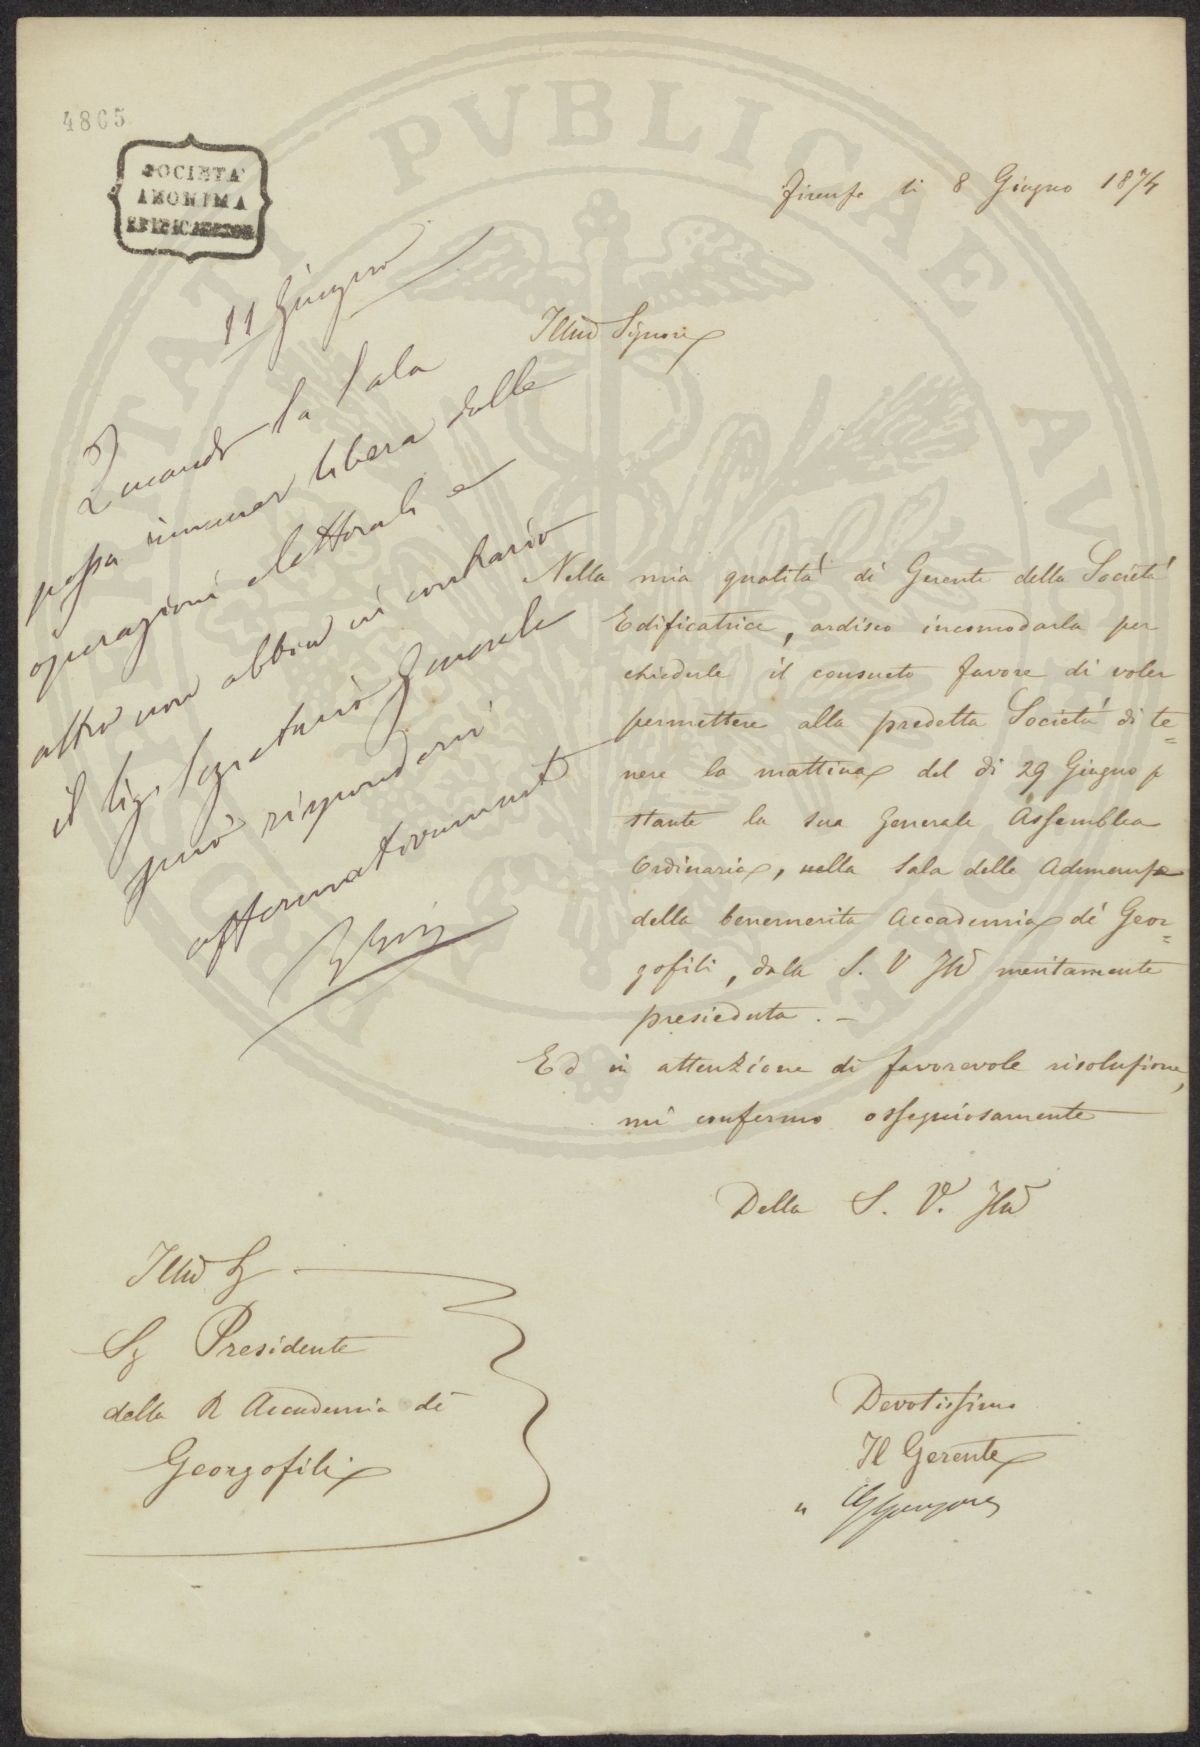 4865
SOCIETA'
ANONIMA
EDIFICATRICE
Firenze li 8 Giugno 1874
Illmo Signore
11 Giugno
Quando la Sala
possa rimaner libera dalle
operazioni elettorali e
altro non abbia in contrario
il Sigr Segretario Generale
può rispondere
affermativamente
Nella mia qualità di Gerente della Società
Edificatrice, ardisco incomodarla per
chiederle il consueto favore di voler
permettere alla predetta Società di te=
nere la mattina del di 29 Giugno p
stante la sua Generale Assemblea
Ordinaria, nella Sala delle Adunanze
della benemerita Accademia de' Geor=
gofili, dalla S. V Illma meritamente
presieduta. —
Ed in attenzione di favorevole risoluzione,
mi confermo ossequiosamente
Della S. V. Illma
Illmo Sg
Sg Presidente
della R Accademia de'
Georgofili
Devotissimo
Il Gerente
PVBLICAE